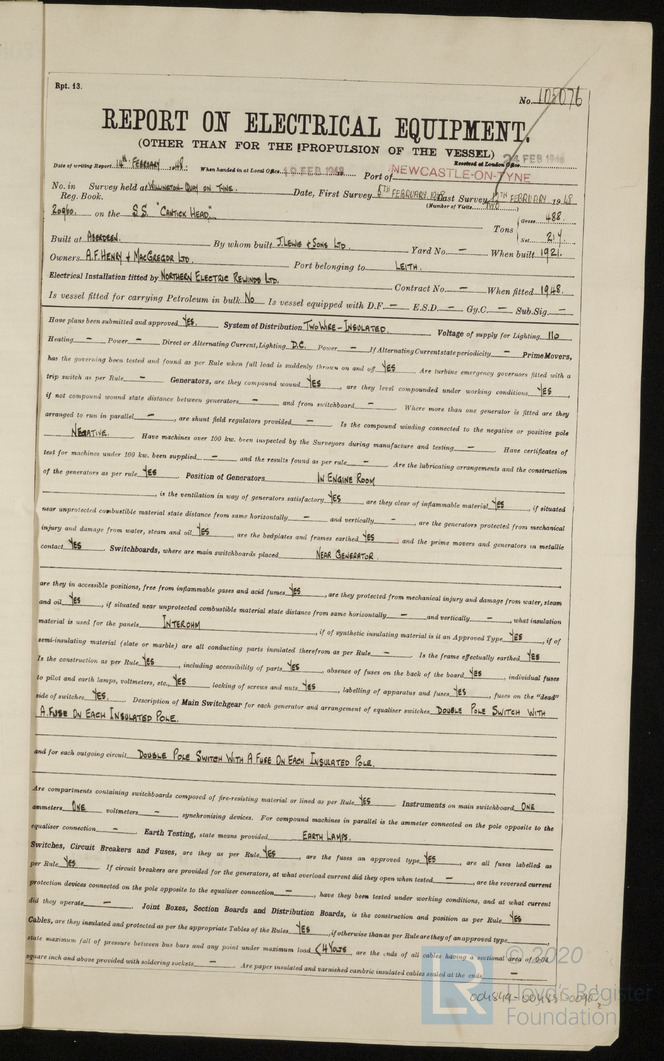 Rpt. 13.
No. 105076
REPORT ON ELECTRICAL EQUIPMENT.
(OTHER THAN FOR THE PROPULSION OF THE VESSEL)
Date of writing Report 14th February 1948. When handed in at Local Office 19 FEB 1948 Port of NEWCASTLE-ON-TYNE Received at London Office FEB 1948
No. in Reg. Book. Survey held at Willington-Quay on Tyne. Date, First Survey 5th February, 1948 Last Survey February 1948
(Number of Visits )
20960. on the S.S. "Cantick Head" Tons Gross 488. Net 217.
Built at Aberdeen. By whom built J. Lewis & Sons Ltd. Yard No. — When built 1921.
Owners A.F. Henry & MacGregor Ltd. Port belonging to Leith.
Electrical Installation fitted by Northern Electric Rewinds Ltd. Contract No. — When fitted 1948.
Is vessel fitted for carrying Petroleum in bulk No Is vessel equipped with D.F. — E.S.D. — Gy.C. — Sub.Sig. —
Have plans been submitted and approved Yes. System of Distribution Two Wire-Insulated. Voltage of supply for Lighting 110
Heating — Power — Direct or Alternating Current, Lighting D.C. Power — If Alternating Current state periodicity — Prime Movers,
has the governing been tested and found as per Rule when full load is suddenly thrown on and off Yes Are turbine emergency governors fitted with a
trip switch as per Rule — Generators, are they compound wound Yes, are they level compounded under working conditions Yes,
if not compound wound state distance between generators — and from switchboard — Where more than one generator is fitted are they
arranged to run in parallel —, are shunt field regulators provided — Is the compound winding connected to the negative or positive pole
Negative. Have machines over 100 kw. been inspected by the Surveyors during manufacture and testing — Have certificates of
test for machines under 100 kw. been supplied — and the results found as per rule — Are the lubricating arrangements and the construction
of the generators as per rule Yes Position of Generators In Engine Room
, is the ventilation in way of generators satisfactory Yes are they clear of inflammable material Yes, if situated
near unprotected combustible material state distance from same horizontally — and vertically —, are the generators protected from mechanical
injury and damage from water, steam and oil Yes, are the bedplates and frames earthed Yes and the prime movers and generators in metallic
contact Yes Switchboards, where are main switchboards placed Near Generator.
are they in accessible positions, free from inflammable gases and acid fumes Yes, are they protected from mechanical injury and damage from water, steam
and oil Yes, if situated near unprotected combustible material state distance from same horizontally — and vertically —, what insulation
material is used for the panels Interohm, if of synthetic insulating material is it an Approved Type Yes, if of
semi-insulating material (slate or marble) are all conducting parts insulated therefrom as per Rule — Is the frame effectually earthed Yes
Is the construction as per Rule Yes, including accessibility of parts Yes, absence of fuses on the back of the board Yes, individual fuses
to pilot and earth lamps, voltmeters, etc., Yes locking of screws and nuts Yes, labelling of apparatus and fuses Yes, fuses on the "dead"
side of switches Yes. Description of Main Switchgear for each generator and arrangement of equaliser switches Double Pole Switch With
A Fuse On Each Insulated Pole.
and for each outgoing circuit Double Pole Switch With A Fuse On Each Insulated Pole.
Are compartments containing switchboards composed of fire-resisting material or lined as per Rule Yes Instruments on main switchboard One
ammeters One voltmeters — synchronising devices. For compound machines in parallel is the ammeter connected on the pole opposite to the
equaliser connection — Earth Testing, state means provided Earth Lamps.
Switches, Circuit Breakers and Fuses, are they as per Rule Yes, are the fuses an approved type Yes, are all fuses labelled as
per Rule Yes If circuit breakers are provided for the generators, at what overload current did they open when tested —, are the reversed current
protection devices connected on the pole opposite to the equaliser connection —, have they been tested under working conditions, and at what current
did they operate — Joint Boxes, Section Boards and Distribution Boards, is the construction and position as per Rule Yes
Cables, are they insulated and protected as per the appropriate Tables of the Rules Yes, if otherwise than as per Rule are they of an approved type
state maximum fall of pressure between bus bars and any point under maximum load <4 Volts are the ends of all cables having a sectional area of 0.04
square inch and above provided with soldering sockets — Are paper insulated and varnished cambric insulated cables sealed at the ends —
© 2020
LR
Lloyd's Register
Foundation